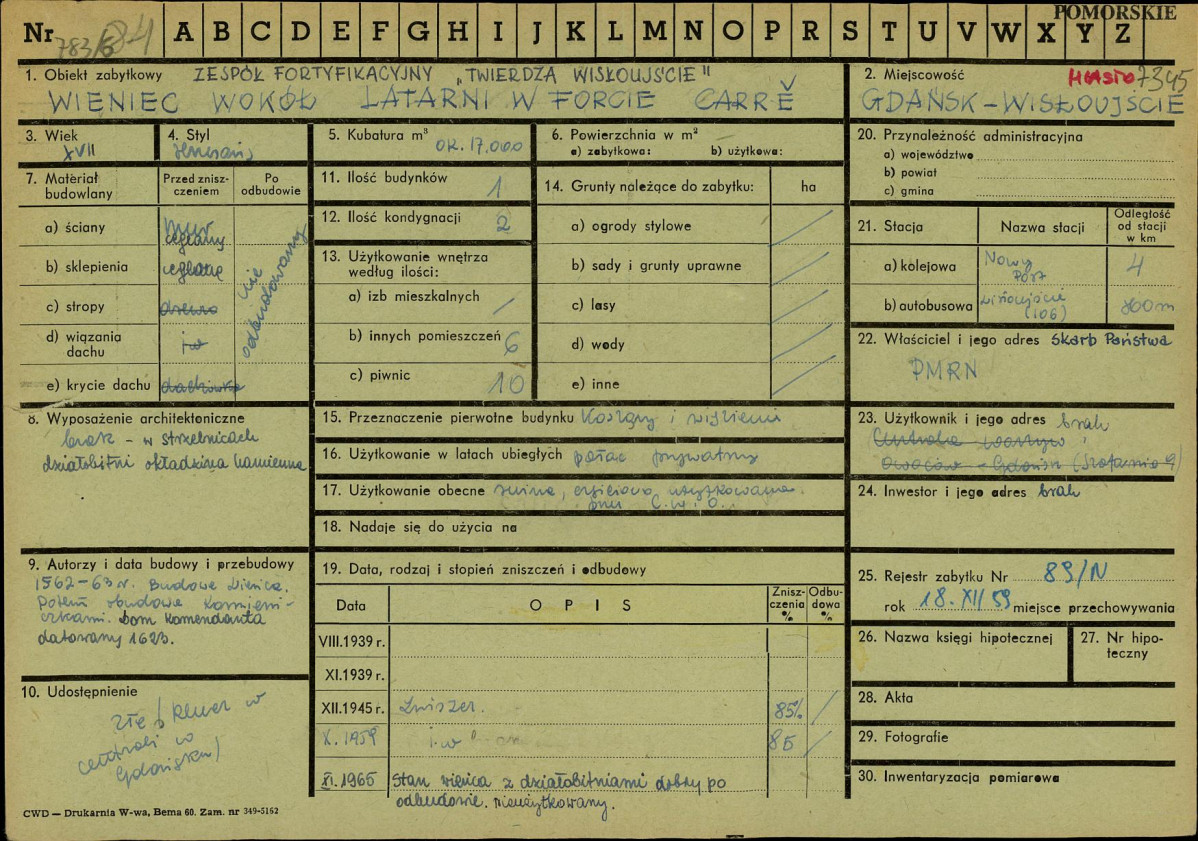 POMORSKIE
Nr 783/6 84 A B C D E F G H I J K L M N O P R S T U V W X Y Z
1. Obiekt zabytkowy ZESPÓŁ FORTYFIKACYJNY „TWIERDZA WISŁOUJŚCIE"
WIENIEC WOKÓŁ LATARNI W FORCIE CARRĚ
2. Miejscowość 7345
GDAŃSK – WISŁOUJŚCIE
3. Wiek
XVII
4. Styl
5. Kubatura m³
OK. 17.000
6. Powierzchnia w m²
a) zabytkowa: b) użytkowa:
20. Przynależność administracyjna
a) województwo
b) powiat
c) gmina
7. Materiał budowlany
Przed zniszczeniem
Po odbudowie
a) ściany mur ceglany
b) sklepienia ceglane
c) stropy drewno
d) wiązania dachu jw
e) krycie dachu dachówka
nie odbudowany
11. Ilość budynków 1
12. Ilość kondygnacji 2
13. Użytkowanie wnętrza według ilości:
a) izb mieszkalnych /
b) innych pomieszczeń 6
c) piwnic 10
14. Grunty należące do zabytku: ha
a) ogrody stylowe /
b) sady i grunty uprawne /
c) lasy /
d) wody /
e) inne /
21. Stacja
Nazwa stacji
Odległość od stacji w km
a) kolejowa Nowy Port 4
b) autobusowa Wisłoujście (106) 800m
22. Właściciel i jego adres Skarb Państwa
PMRN
8. Wyposażenie architektoniczne
brak – w strzelnicach
działobitni okładzina kamienna
15. Przeznaczenie pierwotne budynku Koszary i więzienie
16. Użytkowanie w latach ubiegłych pałac prywatny
17. Użytkowanie obecne ruina, częściowo użytkowana
przez C.W.i O.
18. Nadaje się do użycia na
23. Użytkownik i jego adres brak
Centrala Warzyw i
Owoców – Gdańsk (Szafarnia 9)
24. Inwestor i jego adres brak
9. Autorzy i data budowy i przebudowy
1562–63 r. Budowa Wieńca.
Potem obudowa kamieni-
czkami. Dom Komendanta
datowany 1623.
19. Data, rodzaj i stopień zniszczeń i odbudowy
Data OPIS Zniszczenia % Odbudowa %
VIII.1939 r.
XI.1939 r.
XII.1945 r. Zniszcz. 85% /
X. 1959 j.w. 85 /
XI. 1965 Stan wieńca z działobitniami dobry po
odbudowie. Nieużytkowany.
25. Rejestr zabytku Nr 89/N
rok 18.XII/59 miejsce przechowywania
26. Nazwa księgi hipotecznej
27. Nr hipoteczny
28. Akta
29. Fotografie
30. Inwentaryzacja pomiarowa
10. Udostępnienie
złe (klucz w
centrali w
Gdańsku)
CWD — Drukarnia W-wa, Bema 60. Zam. nr 349-5162